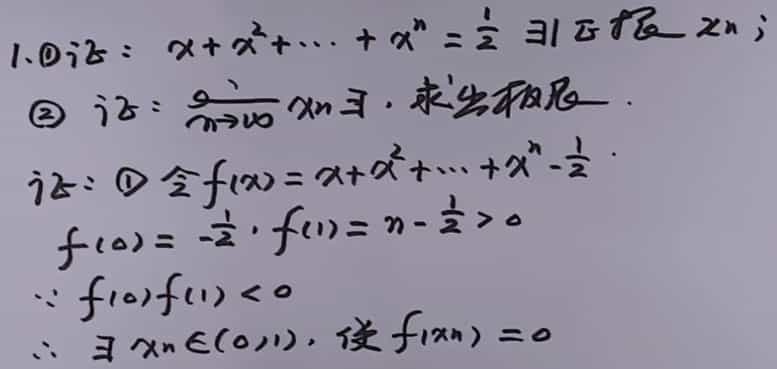 1.①证：x+x²+⋯+xⁿ=1/2 ∃1正根 xn；
② 证：lim n→∞ xn∃．求出极限．
证：① 令f(x)=x+x²+⋯+xⁿ-1/2．
f(0)=-1/2，f(1)=n-1/2>0
∵ f(0)f(1)<0
∴ ∃ xn∈(0,1)，使 f(xn)=0